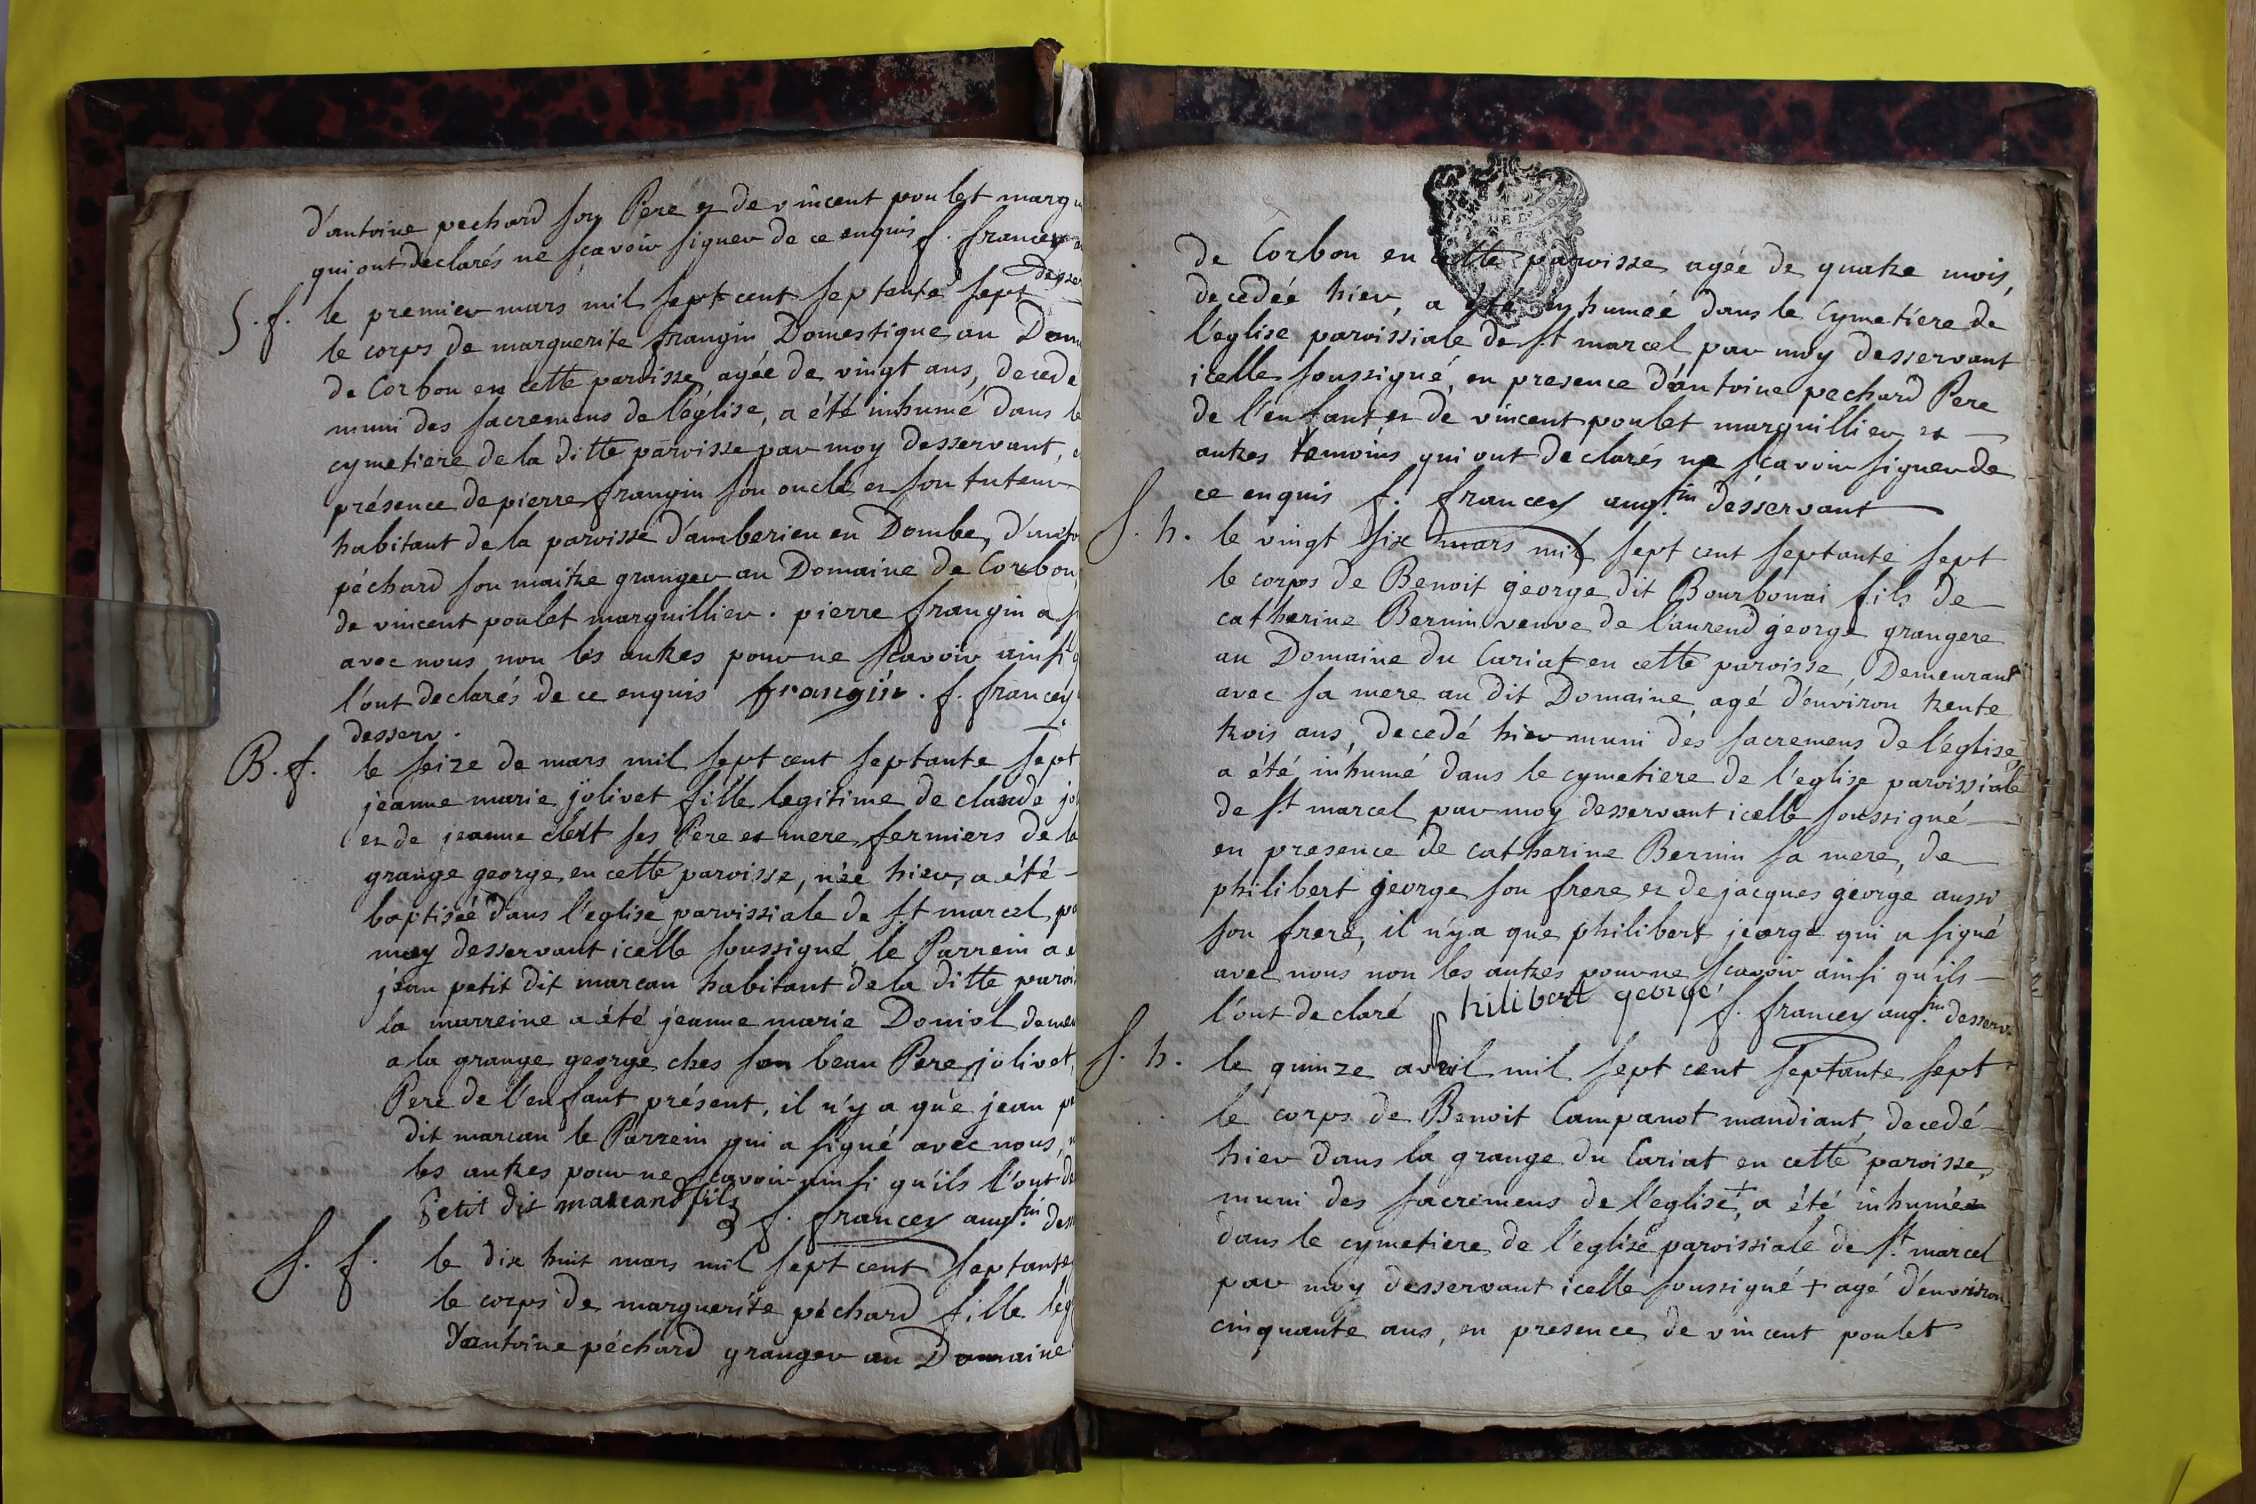 d'antoine pechard son Pere et de vincent poulet margu
qui ont declarés ne scavoir signer de ce enquis f. francey
desser
S. f. le premier mars mil sept cent septente sept
le corps de marguerite frangin Domestique au Dom
de Corbon en cette paroisse, agée de vingt ans, decede
muni des sacremens de l'église, a été inhumé dans le
cymetiere de la ditte paroisse par moy desservant, e
présence de pierre frangin son oncle et son tuteur
habitant de la paroisse d'amberieu en Dombe, d'anto
péchard son maitre granger au Domaine de Corbon,
de vincent poulet marguillier. pierre frangin a s
avec nous non les autres pour ne scavoir ainsi q
l'ont declarés de ce enquis frangin. f. francey
desserv.
B. f. le seize de mars mil sept cent septante sept
jeanne marie jolivet fille legitime de claude jol
et de jeanne clert ses Pere et mere fermiers de la
grange george en cette paroisse, née hier, a été
baptiséé dans l'eglise paroissiale de St marcel pa
moy desservant icelle soussigné, le Parrein a é
jean petit dit marcan habitant de la ditte paroi
la marreine a été jeanne marie Doniol demeu
a la grange george ches son beau Pere jolivet,
Pere de l'enfant présent, il n'y a que jean pe
dit marcan le Parrein qui a signé avec nous, n
les autres pour ne scavoir ainsi qu'ils l'ont de
Petit dit marcand fils f. francey aug.tin des
S. f. le dix huit mars mil sept cent septante
le corps de marguerite péchard fille leg
d'antoine péchard granger au Domaine
de Corbon en cette paroisse, agée de quatre mois,
decedéé hier, a été inhuméé dans le Cymetiere de
l'eglise paroissiale de St marcel par moy desservant
icelle soussigné, en presence d'antoine pechard Pere
de l'enfant et de vincent poulet marguillier et
autres temoins qui ont declarés ne scavoir signer de
ce enquis f. francey aug.tin desservant
S. h. le vingt six mars mil sept cent septante sept
le corps de Benoit george dit Bourbonai fils de
catherine Bernin veuve de laurend george grangere
au Domaine du Cariat en cette paroisse, Demeurant
avec sa mere au dit Domaine, agé d'environ trente
trois ans, decedé hier muni des sacremens de l'église,
a été inhumé dans le cymetiere de l'eglise paroissiale
de St marcel par moy desservant icelle soussigné
en presence de catherine Bernin sa mere, de
philibert george son frere et de jacques george aussi
son frere, il n'y a que philibert jeorge qui a signé
avec nous non les autres pour ne scavoir ainsi qu'ils
l'ont declaré philibert george f. francey aug.tin desserv.
S. h. le quinze avril mil sept cent septante sept
le corps de Benoit Campanot mandiant, decedé
hier dans la grange du Cariat en cette paroisse,
muni des sacremens de l'eglise +, a été inhumé
dans le cymetiere de l'eglise paroissiale de St marcel
par moy desservant icelle soussigné + agé d'environ
cinquante ans, en presence de vincent poulet